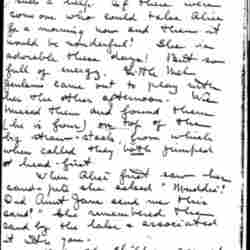 such a help. If there were
someone who could take Alice
for a morning now and then it
would be wonderful! She is
adorable these days! But so
full of energy. Little
came out to play with
her the other afternoon. We
missed them and found them
(he is four) on top of the
big straw-stack from which
when called they both jumped
head-first
When Alice first saw her
sand-pile she asked "Mudder!
Did Aunt Jane send me this
sand?" She remembered the
sand by the lake & associated
it with you.